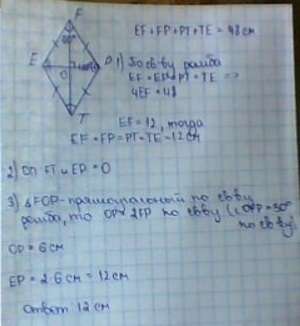 F
EF + FP + PT + TE = 48 см
E
O
T
1) По св-ву ромба
EF = FP = PT = TE =>
4EF = 48
EF = 12, тогда
EF = FP = PT = TE = 12 см
2) FT и EP = O
3) △FOP - прямоугольный по св-ву
ромба, то по св-ву
по св-ву)
OP = 6 см
EP = 2·6 см = 12 см
Ответ 12 см